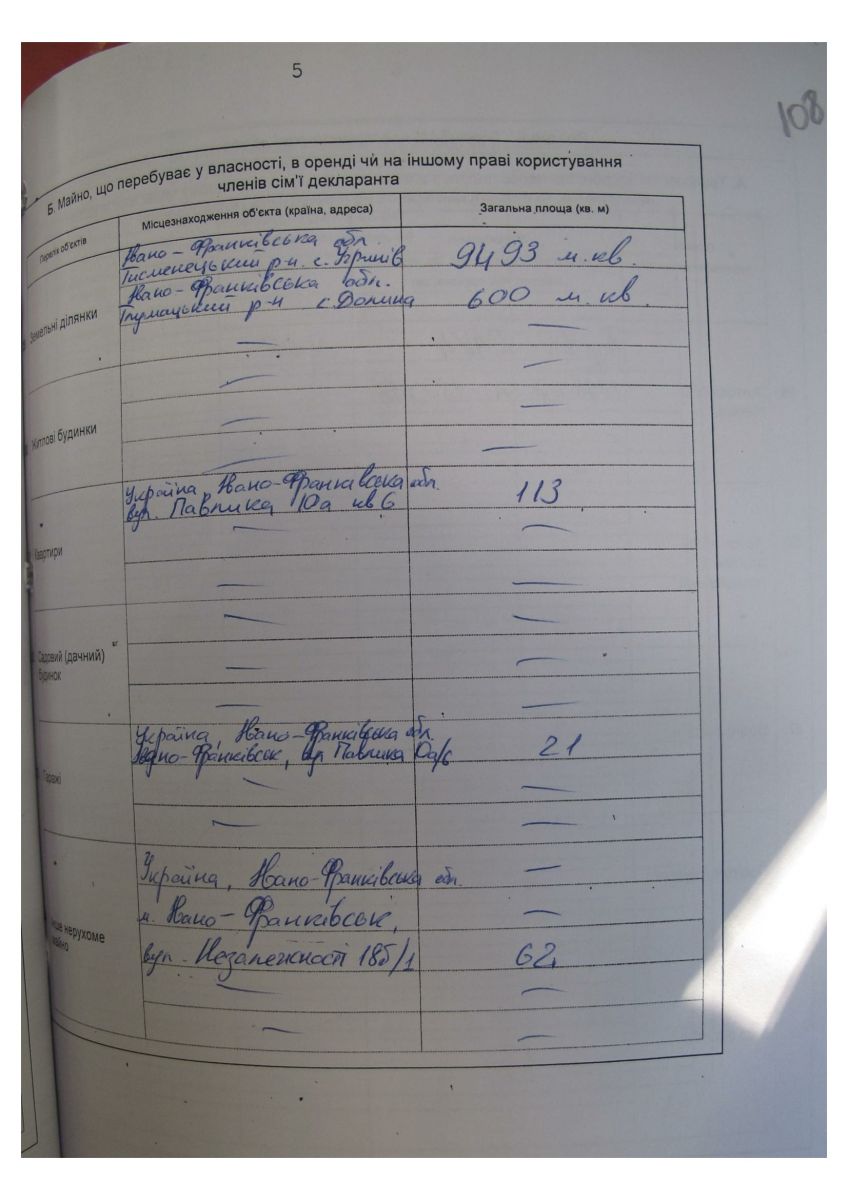 5
108
Б. Майно, що перебуває у власності, в оренді чи на іншому праві користування
членів сім'ї декларанта
Перелік об'єктів
Місцезнаходження об'єкта (країна, адреса)
Загальна площа (кв. м)
Земельні ділянки
Івано-Франківська обл.
Тисменецький р-н. с.
9493 м.кв.
Івано-Франківська обл.
Тлумацький р-н с.Долина
600 м.кв.
—
—
—
—
Житлові будинки
—
—
—
—
Квартири
Україна, Івано-Франківська обл.
вул. Павлика 10а кв 6
113
—
—
—
—
Садовий (дачний)
будинок
—
—
—
—
—
—
Гаражі
Україна, Івано-Франківська обл.
Івано-Франківськ, вул Павлика 10а/6
21
—
—
—
—
нерухоме
майно
Україна, Івано-Франківська обл.
—
м. Івано-Франківськ,
—
вул. Незалежності 18б/1
62
—
—
—
—